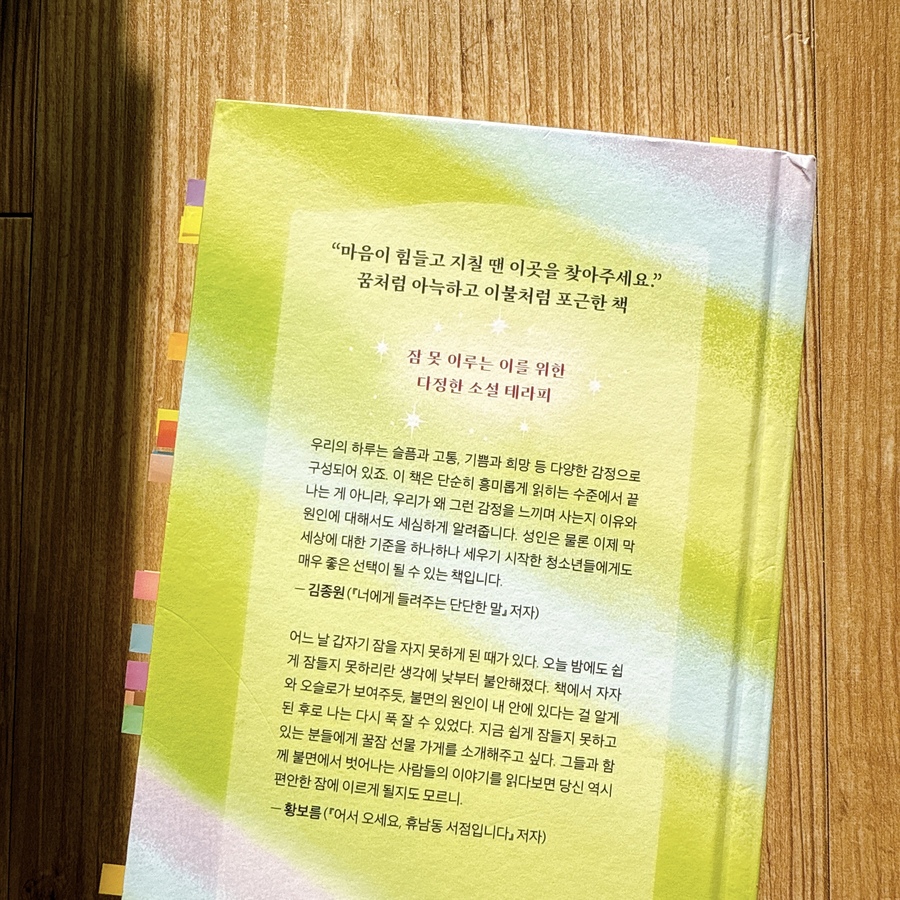 “마음이 힘들고 지칠 땐 이곳을 찾아주세요.”
꿈처럼 아늑하고 이불처럼 포근한 책
잠 못 이루는 이를 위한
다정한 소설 테라피
우리의 하루는 슬픔과 고통, 기쁨과 희망 등 다양한 감정으로
구성되어 있죠. 이 책은 단순히 흥미롭게 읽히는 수준에서 끝
나는 게 아니라, 우리가 왜 그런 감정을 느끼며 사는지 이유와
원인에 대해서도 세심하게 알려줍니다. 성인은 물론 이제 막
세상에 대한 기준을 하나하나 세우기 시작한 청소년들에게도
매우 좋은 선택이 될 수 있는 책입니다.
― 김종원 (『너에게 들려주는 단단한 말』 저자)
어느 날 갑자기 잠을 자지 못하게 된 때가 있다. 오늘 밤에도 쉽
게 잠들지 못하리란 생각에 낮부터 불안해졌다. 책에서 자자
와 오슬로가 보여주듯, 불면의 원인이 내 안에 있다는 걸 알게
된 후로 나는 다시 푹 잘 수 있었다. 지금 쉽게 잠들지 못하고
있는 분들에게 꿀잠 선물 가게를 소개해주고 싶다. 그들과 함
께 불면에서 벗어나는 사람들의 이야기를 읽다보면 당신 역시
편안한 잠에 이르게 될지도 모르니.
― 황보름 (『어서 오세요, 휴남동 서점입니다』 저자)